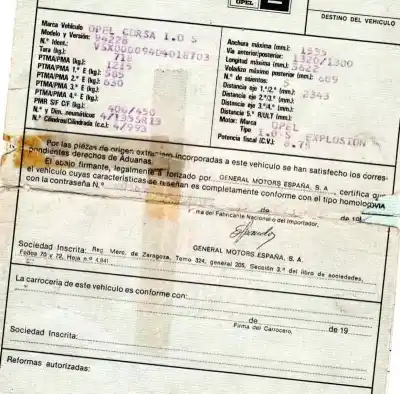 OPEL
DESTINO DEL VEHICULO
Marca Vehículo OPEL CORSA 1.0 S
Modelo y Versión: 94Z28
N.º Ident.: VSX000094D4018703
Tara (kg): 718
PTMA/PMA (kg): 1215
PTMA/PMA 1.º E (kg): 585
PTMA/PMA 2.º E (kg): 630
PTMA/PMA 3.º E (kg):
PTMA/PMA 4.º E (kg):
PMR S/F C/F (kg): 400/450
N.º y Dim. neumáticos 4/135SR13
N.º Cilindros/Cilindrada (c.c.) 4/993
Anchura máxima (mm.): 1535
Vía anterior/posterior: 1320/1300
Longitud máxima (mm.): 3622
Voladizo máximo posterior (mm.): 689
N.º de asientos: 5
Distancia eje 1.º/2.º (mm.): 2343
Distancia eje 2.º/3.º (mm.):
Distancia eje 3.º/4.º (mm.):
Distancia 5.ª RULT (mm.):
Motor: Marca OPEL
Tipo 1.0 S EXPLOSION
Potencia fiscal (C.V.): 8.75
Por las piezas de origen extranjero incorporadas a este vehículo se han satisfecho los corres-
pondientes derechos de Aduanas.
El abajo firmante, legalmente autorizado por GENERAL MOTORS ESPAÑA, S. A. certifica que
el vehículo cuyas características se reseñan es completamente conforme con el tipo homologa
con la contraseña N.º
de de 19
Firma del Fabricante Nacional o del Importador.
GENERAL MOTORS ESPAÑA, S. A.
Sociedad Inscrita: Reg. Merc. de Zaragoza, Tomo 324, general 205, Sección 3.ª del libro de sociedades,
Folios 70 y 72, Hoja n.º 4.841
La carrocería de este vehículo es conforme con:
de de 19
Firma del Carrocero,
Sociedad Inscrita:
Reformas autorizadas: